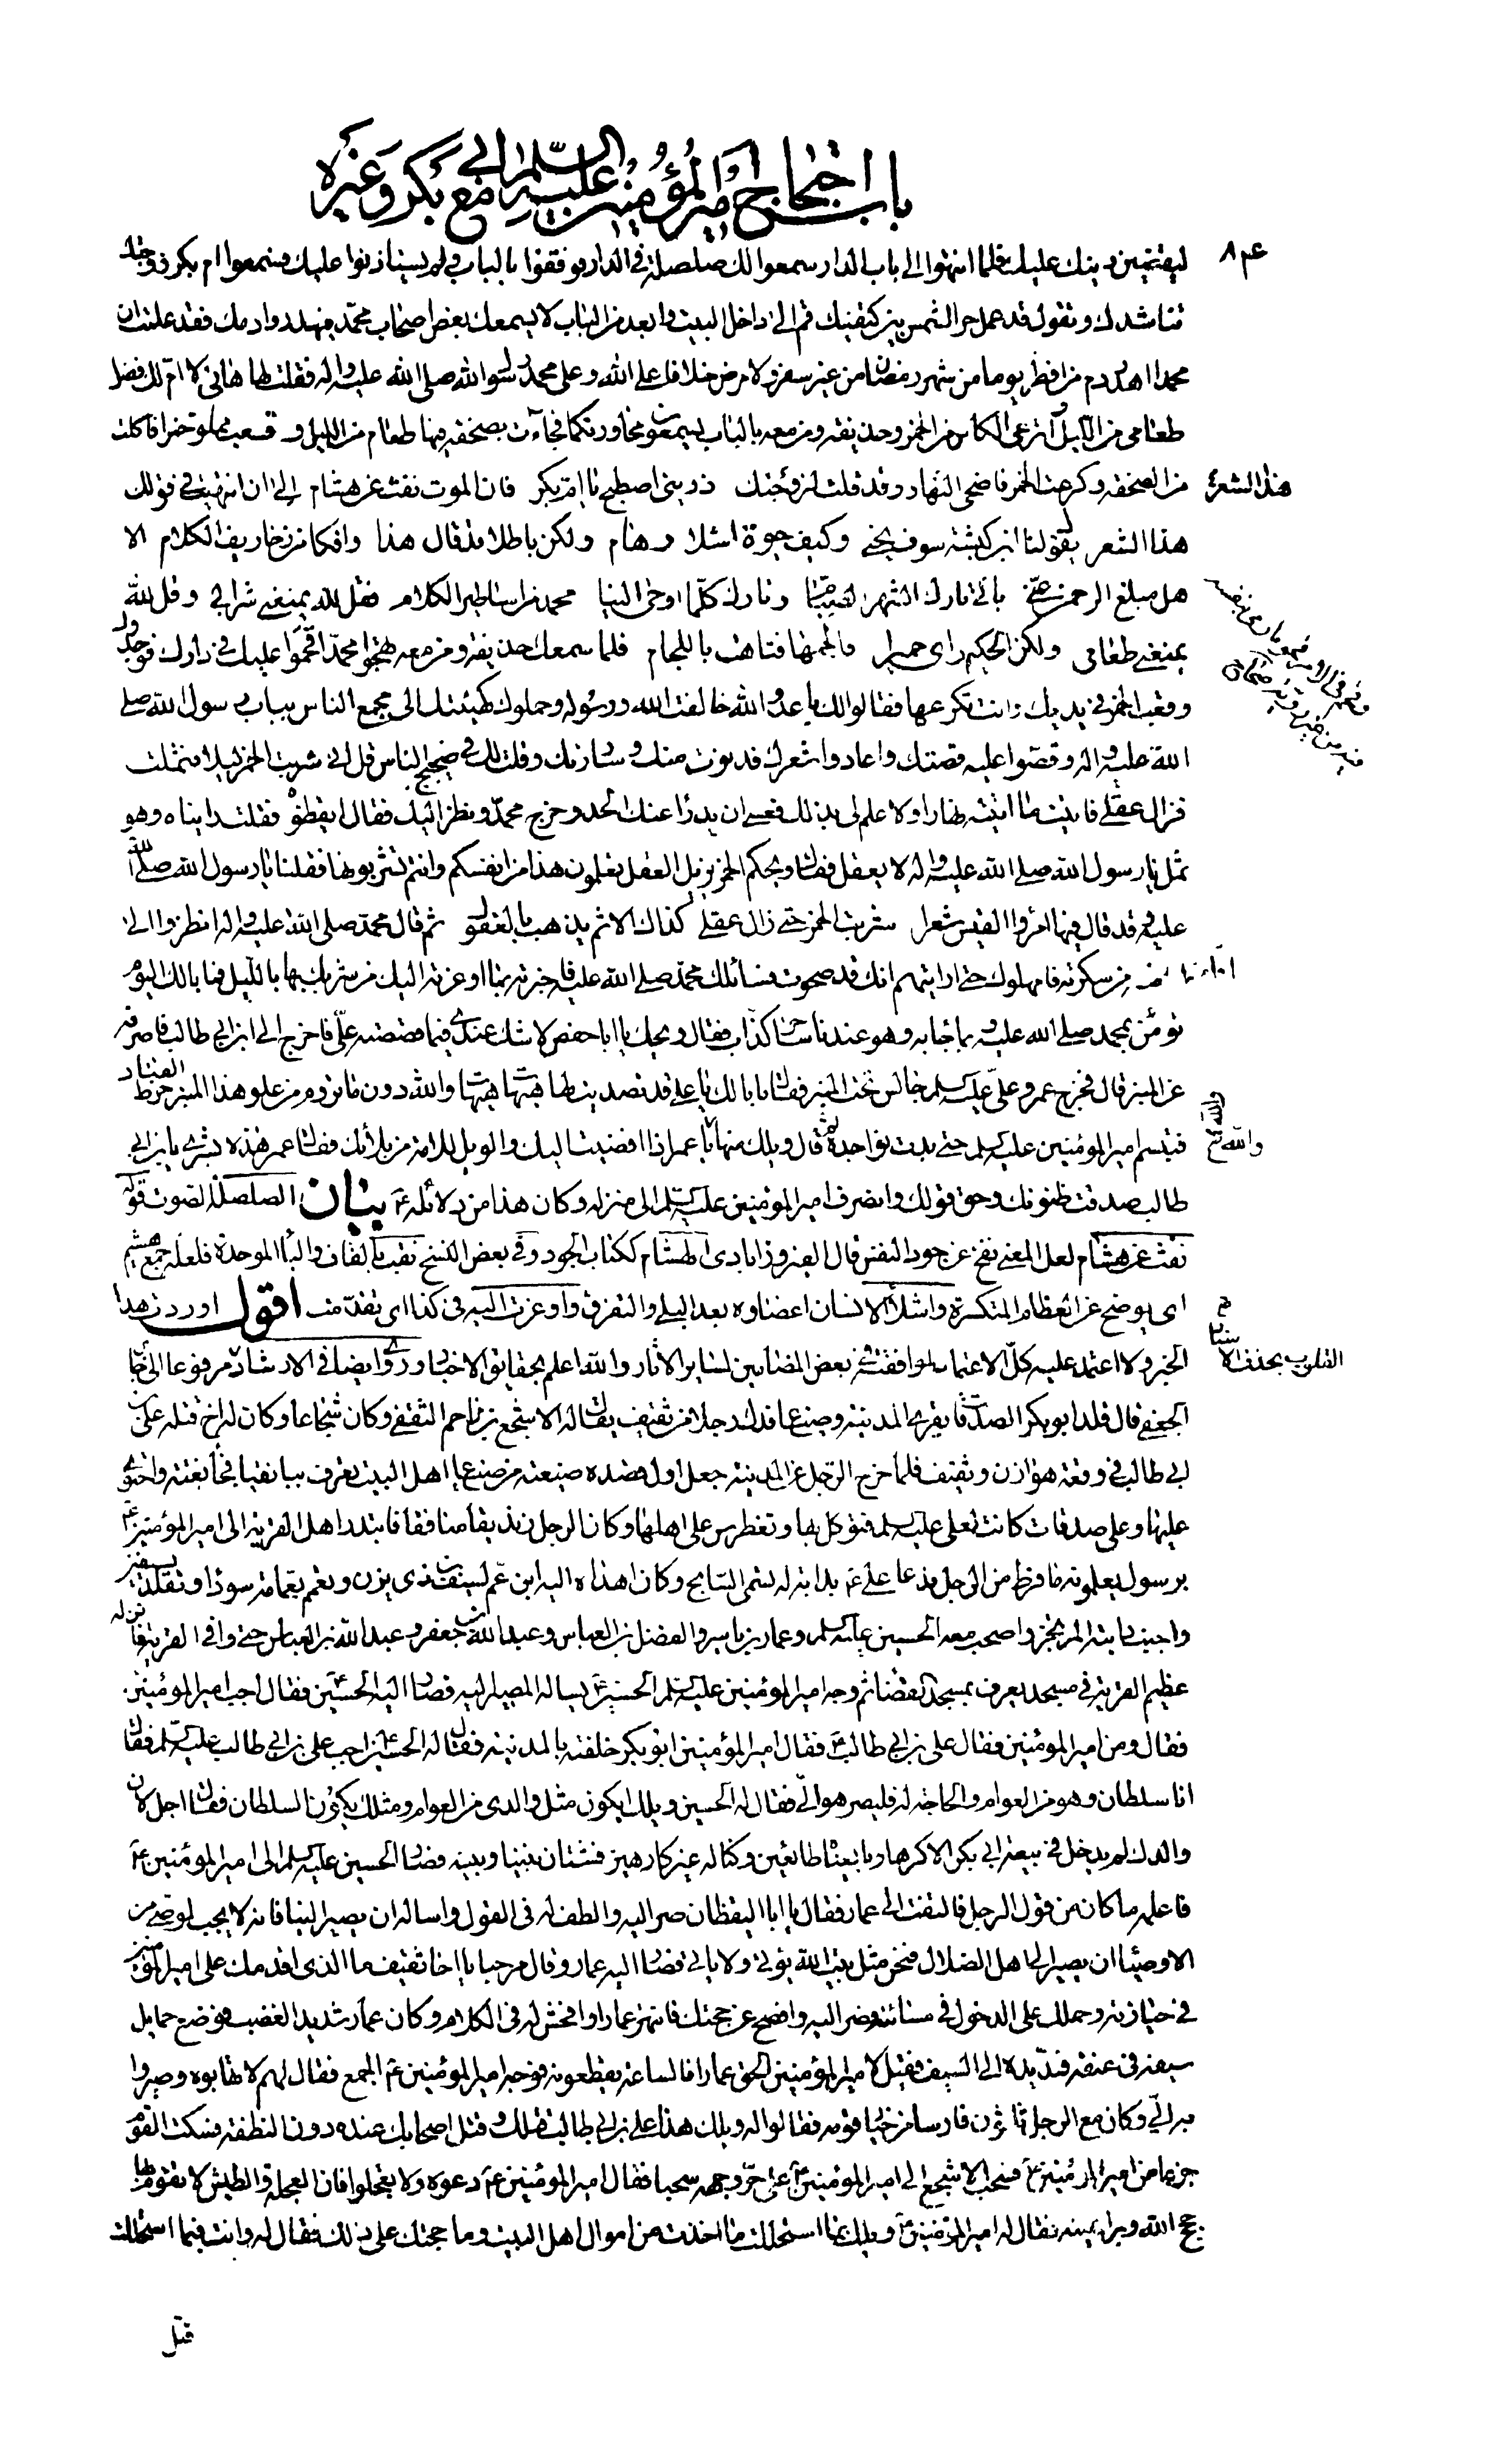 باب احتجاج امير المؤمنين عليه السلم على ابي بكر وغيره
ليقتحمن دينك عليك فلما انتهوا الى باب الدار سمعوا لك صلصلة في الدار فوقفوا بالباب ولم يستاذنوا عليك فسمعوا ام بكر زوجتك
تناشدك وتقول قد عمل حر الشمس بين كتفيك قم الى داخل البيت وابعد من الباب لا يسمعك بعض اصحاب محمد فيهدروا دمك فقد علمت ان
محمدا اهدر دم من افطر يوما من شهر رمضان من غير سفر ولا مرض خلافا على الله وعلى محمد رسول الله صلى الله عليه واله فقلت لها هاتي لا ام لك فضل
طعامي من الليل واترعي الكاس من الخمر وحذيفة ومن معه بالباب يسمعون محاورتكما فجاءت بصحفة فيها طعام من الليل وقعب مملو خمرا فاكلت
من الصحفة وكرعت الخمر فاضحى النهار وقد قلت لزوجتك ذريني اصطبح يا ام بكر فان الموت نفث عن هشام الى ان انتهيت في قولك
هذا الشعر
هذا الشعر يقول لنا ابن كبشة سوف نحيى وكيف حيوة اشلاء وهام ولكن باطلا ما قال هذا وافكا من زخاريف الكلام الا
هل مبلغ الرحمن عني باني تارك شهر الصيام وتارك كلما اوحى الينا محمد من اساطير الكلام فقل لله يمنعني شرابي وقل لله
يمنعني طعامي ولكن الحكيم راى حميرا فالجمها فتاهت باللجام فلما سمعك حذيفة ومن معه تهجو محمدا قحموا عليك في دارك فوجدوك
وقعب الخمر في يديك وانت تكرعها فقالوا لك يا عدو الله خالفت الله ورسوله وحملوك كهيئتك الى مجمع الناس بباب رسول الله صلى
الله عليه واله وقصوا عليه قصتك واعادوا شعرك فدنوت منك وساررتك وقلت لك في ضجيج الناس قل اني شربت الخمر ليلا فثملت
فزال عقلي فاتيت ما اتيته نهارا ولا علم لي بذلك فعسى ان يدرا عنك الحد وخرج محمد ونظر اليك فقال ايقظوه فقلت رايناه وهو
ثمل يا رسول الله صلى الله عليه واله لا يعقل فقال ويحكم الخمر يزيل العقل تعلمون هذا من انفسكم وانتم تشربونها فقلنا يا رسول الله صلى الله
عليه وقد قال فيها امرؤ القيس شعرا شربت الخمر حتى زال عقلي كذاك الاثم يذهب بالعقول ثم قال محمد صلى الله عليه واله انظروا الى
من سكرته فامهلوك حتى اريتهم انك قد صحوت فسائلك محمد صلى الله عليه فاخبرته بما اوعزته اليك من شربك بها بالليل فما بالك اليوم
تؤمن بمحمد صلى الله عليه وبما جاء به وهو عندنا ساحر كذاب فقال ويحك يا ابا حفص لا شك عندي فيما قصصته علي فاخرج الى ابن ابي طالب فاصرفه
عن المنبر قال فخرج عمر وعلي عليه السلم جالس تحت المنبر فقال ما بالك يا علي قد تصديت لها هيهات هيهات والله دون ما تروم من علو هذا المنبر خرط القتاد
فتبسم امير المؤمنين عليه السلم حتى بدت نواجذه ثم قال ويلك منها يا عمر اذا افضيت اليك والويل للامة من بلائك فقال عمر هذه بشرى يا بن ابي
طالب صدقت ظنونك وحق قولك وانصرف امير المؤمنين عليه السلم الى منزله وكان هذا من دلائله ع بيان الصلصلة الصوت قوله
نفث عن هشام لعل المعنى نفخ عن جود النفس قال الفيروزابادي الهشام ككتاب الجود وفي بعض النسخ نقب بالقاف والباء الموحدة فلعله جمع هشيم
اي يوضح عن العظام المتكسرة واشلاء الانسان اعضاؤه بعد البلى والتفرق واوعزت اليه في كذا اي تقدمت اقول اوردت هذا
الخبر ولا اعتمد عليه كل الاعتماد لموافقته في بعض المضامين لساير الاثار والله اعلم بحقايق الاخبار وروى ايضا في الارشاد مرفوعا الى جابر
الجعفي قال قلد ابو بكر الصدقات بقرى المدينة وضياع فدك رجلا من ثقيف يقال له الاشجع بن مزاحم الثقفي وكان شجاعا وكان له اخ قتله علي بن
ابي طالب في وقعة هوازن وثقيف فلما خرج الرجل عن المدينة جعل اول قصده ضيعة من ضياع اهل البيت تعرف ببانقيا فجاء بغتة واحتوى
عليها وعلى صدقات كانت لعلي عليه السلم فتوكل بها وتغطرس على اهلها وكان الرجل زنديقا منافقا فابتدر اهل القرية الى امير المؤمنين ع
برسول يعلمونه ما فرط من الرجل فدعا علي ع بدابة له تسمى السابح وكان اهداه اليه ابن عم لسيف بن ذي يزن وتعمم بعمامة سوداء وتقلد بسيفين
واجنب دابته المرتجز واصحب معه الحسين عليه السلم وعمار بن ياسر والفضل بن العباس وعبد الله بن جعفر وعبد الله بن العباس حتى وافى القرية فانزله
عظيم القرية في مسجد يعرف بمسجد القضاء ثم وجه امير المؤمنين عليه السلم الحسين ع يساله المصير اليه فصار اليه الحسين ع فقال اجب امير المؤمنين
فقال ومن امير المؤمنين فقال علي بن ابي طالب ع فقال امير المؤمنين ابو بكر خلفته بالمدينة فقال له الحسين ع اجب علي بن ابي طالب عليه السلم فقال
انا سلطان وهو من العوام والحاجة له فليصر هو الي فقال له الحسين ويلك ايكون مثل والدي من العوام ومثلك يكون السلطان فقال اجل لان
والدك لم يدخل في بيعة ابي بكر الا كرها وبايعناه طائعين وكنا له غير كارهين فشتان بيننا وبينه فصار الحسين عليه السلم الى امير المؤمنين ع
فاعلمه ما كان من قول الرجل فالتفت الى عمار فقال يا ابا اليقظان صر اليه والطف له في القول واساله ان يصير الينا فانه لا يجب لوصي من
الاوصياء ان يصير الى اهل الضلال فنحن مثل بيت الله يؤتى ولا ياتي فصار اليه عمار وقال مرحبا يا اخا ثقيف ما الذي اقدمك على امير المؤمنين
في حيازته وحملك على الدخول في مسائته فصر اليه وافصح عن حجتك فانتهر عمارا وافحش له في الكلام وكان عمار شديد الغضب فوضع حمايل
سيفه في عنقه فمد يده الى السيف فقيل لامير المؤمنين الحق عمارا فالساعة يقطعونه فوجه امير المؤمنين ع الجمع فقال لهم لا تهابوه وصيروا
به الي وكان مع الرجل ثلثون فارسا من خيار قومه فقالوا له ويلك هذا علي بن ابي طالب قتلك وقتل اصحابك عنده دون النطفة فسكت القوم
جزعا من امير المؤمنين ع فسحب الاشجع الى امير المؤمنين ع على حر وجهه سحبا فقال امير المؤمنين ع دعوه ولا تعجلوا فان العجلة والطيش لا تقوم بها
حجج الله وبراهينه فقال له امير المؤمنين ع ويلك بما استحللت ما اخذت من اموال اهل البيت وما حجتك على ذلك فقال له وانت فيما استحللت
قتل